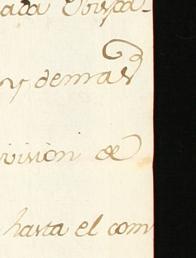 ada Obispa-
y demas
vision de
hasta el com